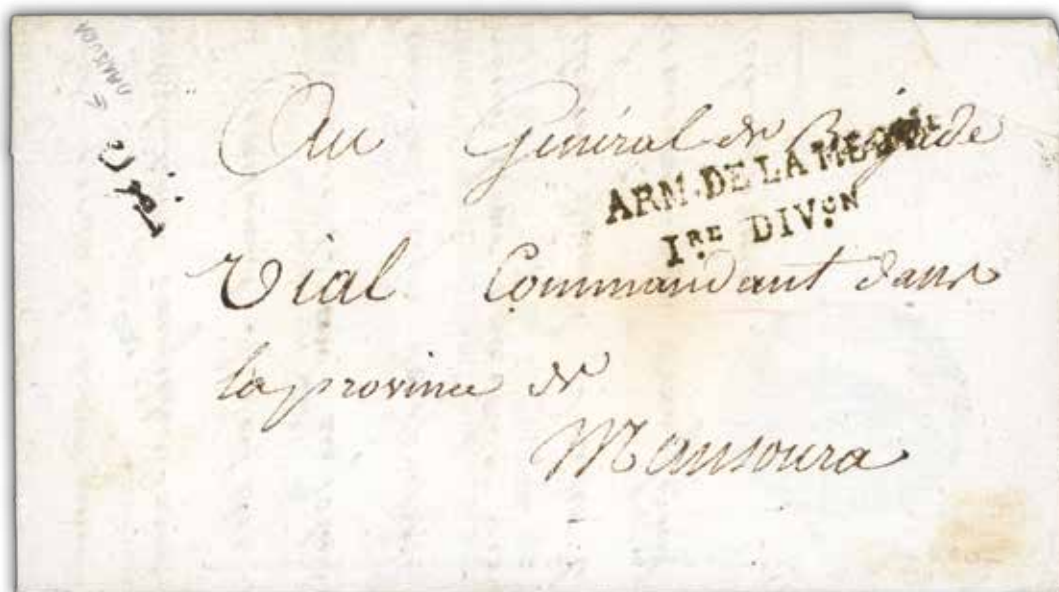 Au Général de Brigade
ARM. DE LA MED
1RE DIVON
Vial Commandant dans
la province de
Mansoura
MANSOURA